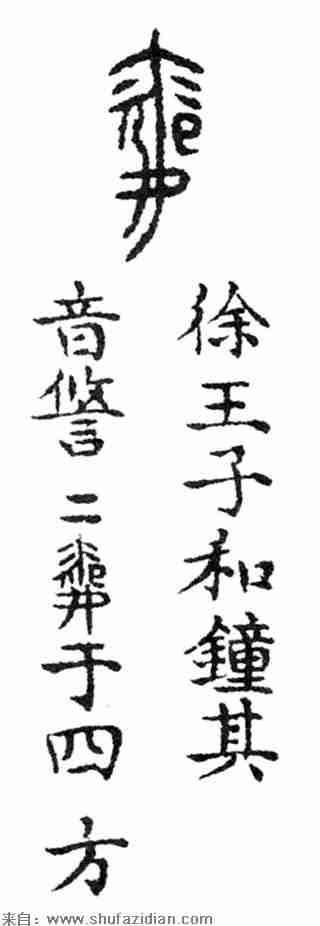 徐王子和鐘其
音二于四方
来自：www.shufazidian.com